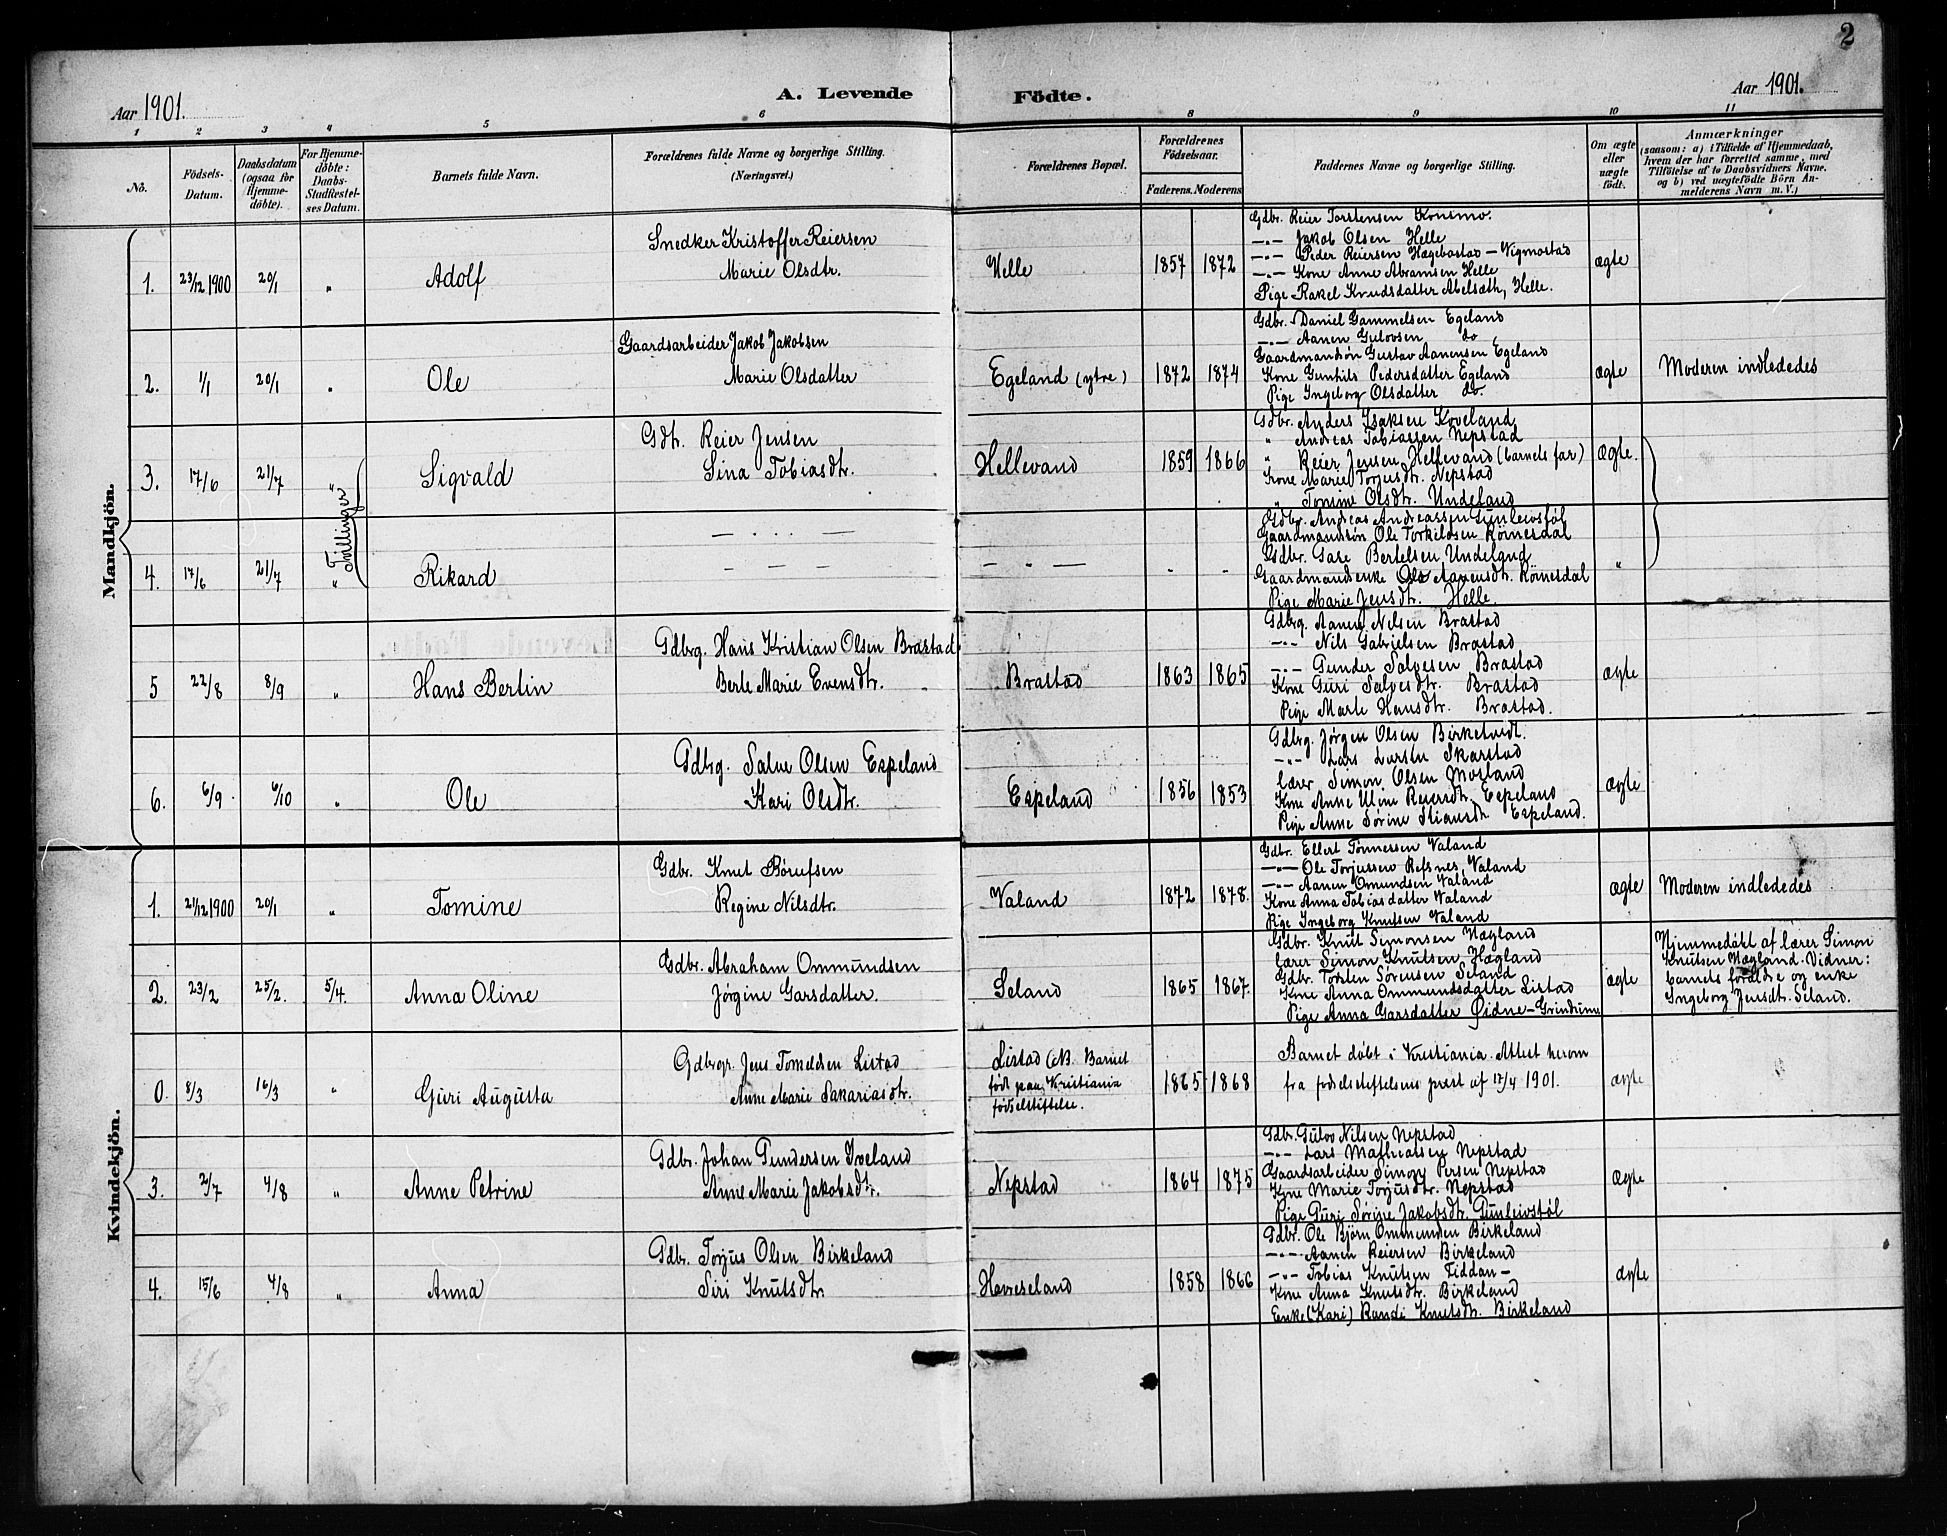 2
Aar 1901.
A. Levende Födte.
Aar 1901.
1 2 3 4 5 6 8 9 10 11
No.
Födsels-Datum.
Daabsdatum (ogsaa for Hjemme-döbte).
For Hjemme-döbte: Daabs-Stadfæstel-ses Datum.
Barnets fulde Navn.
Forældrenes fulde Navne og borgerlige Stilling.
(Næringsvei.)
Forældrenes Bopæl.
Forældrenes Födselsaar.
Faderens. Moderens
Faddernes Navne og borgerlige Stilling.
Om ægte eller uægte födt.
Anmærkninger
(saasom: a) i Tilfælde af Hjemmedaab,
hvem der har forrettet samme, med
Tilföielse af to Daabsvidners Navne,
og b) ved uægtefödte Börn An-
melderens Navn m. V.)
Mandkjön.
1. 23/12 1900 20/1 " Adolf
Snedker Kristoffer Reiersen
Marie Olsdtr.
Helle 1857 1872
Gdbr. Reier Torstensen Konsmo.
—"— Jakob Olsen Helle
—"— Peder Reiersen Hægebostad — Vigmostad
—"— Kone Anne Abramsen Helle
Pige Rakel Knudsdatter Abelsæth, Helle.
ægte
2. 1/1 20/1 " Ole
Gaardsarbeider Jakob Jakobsen
Marie Olsdatter
Egeland (ytre) 1872 1874
Gdbr. Daniel Gammelsen Egeland
—"— Aanen Gulovsen do
Gaardmandsøn Gustav Aanensen Egeland
Kone Gunhild Pedersdatter Egeland
Pige Ingeborg Olsdatter do.
ægte Moderen indlededes
3. 17/6 21/7 " Sigvald
Gdbr. Reier Jensen
Sina Tobiasdtr.
Hellevand 1859 1866
Gdbr. Anders Isaksen Koveland
" Andreas Tobiassen Nepstad
" Reier Jensen Hellevand (barnets far)
Kone Marie Torjusdtr. Nepstad
" Tomine Olsdtr. Undeland
ægte.
Tvillinger
4. 17/6 21/7 " Rikard
— . . . —
— — —
— " —
Gdbr. Andreas Andreassen Gunleivstøl
Gaardmandsøn Ole Torkildsen Rømesdal
Gdbr. Gare Bertelsen Undeland
Gaardmandsenke Ole Aanensdtr. Rømesdal
Pige Marie Jensdtr. Helle.
"
5 22/8 8/9 " Hans Bertin
Gdbrg. Hans Kristian Olsen Brastad
Berte Marie Evensdtr.
Brastad 1863 1865
Gdbrg. Aanen Nilsen Brastad
—"— Nils Gabrielsen Brastad
—"— Gunder Salvesen Brastad
Kone Guri Salvesdtr. Brastad
Pige Marte Hansdtr. Brastad.
ægte
6. 6/9 6/10 " Ole
Gdbrg. Salve Olsen Espeland
Kari Olsdtr.
Espeland 1856 1853
Gdbrg. Jørgen Olsen Birketveit.
—"— Lars Larsen Skarstad
Lærer Simon Olsen Mosland
Kone Anne Oline Reiersdtr. Espeland
Pige Anne Sørine Stiansdtr Espeland.
ægte
Kvindekjön.
1. 21/12 1900 20/1 " Tomine
Gdbr. Knut Børufsen
Regine Nilsdtr.
Valand 1872 1878.
Gdbr. Ellert Tønnessen Valand
—"— Ole Torjussen Refsnes, Valand
—"— Aanen Omundsen Valand
Kone Anna Tobiasdatter Valand
Pige Ingeborg Knutsen Valand
ægte Moderen indlededes
2. 23/2 25/2. 5/4. Anna Oline
Gdbr. Abraham Ommundsen
Jørgine Garsdatter.
Seland 1865 1867.
Gdbr. Knut Simonsen Hægland
Lærer Simon Knutsen Hægland
Gdbr. Torsten Sørensen Seland
Kone Anna Ommundsdatter Listad
Pige Anna Garsdatter Øidne — Grindum
ægte
Hjemmedøbt af lærer Simon
Knutsen Hægland. Vidner:
barnets forældre og enke
Ingeborg Jensdt. Seland.
0. 8/3 16/3 " Guri Augusta
Gdbrgr. Jens Tomeldsen Listad
Anne Marie Sakariasdtr.
Listad (NB. Barnet
født paa Kristiania
fødselstiftelse.
1865 1868
Barnet døbt i Kristiania. Attest herom
fra fødselstiftelsens prest af 17/4 1901.
ægte
3. 2/7 4/8 " Anne Petrine
Gdbr. Johan Gundersen Iveland
Anne Marie Jakobsdtr.
Nepstad 1864 1875
Gdbr. Gulov Nilsen Nepstad
—"— Lars Mathiasen Nepstad
Gaardsarbeider Simon Persen Nepstad
Kone Marie Torjusdtr. Nepstad
Pige Guri Sørine Jakobsdtr. Gunleivstøl
Ægte
4. 15/6 4/8 " Anna
Gdbr. Torjus Olsen Birkeland
Siri Knutsdtr.
Haveseland 1858 1866
Gdbr. Ole Bjørn Ommundsen Birkeland
—"— Aanen Reiersen Birkeland
—"— Tobias Knutsen Fiddan —
Kone Anna Knutsdtr. Birkeland
Enke (Kari) Randi Knutsdtr. Birkeland
ægte